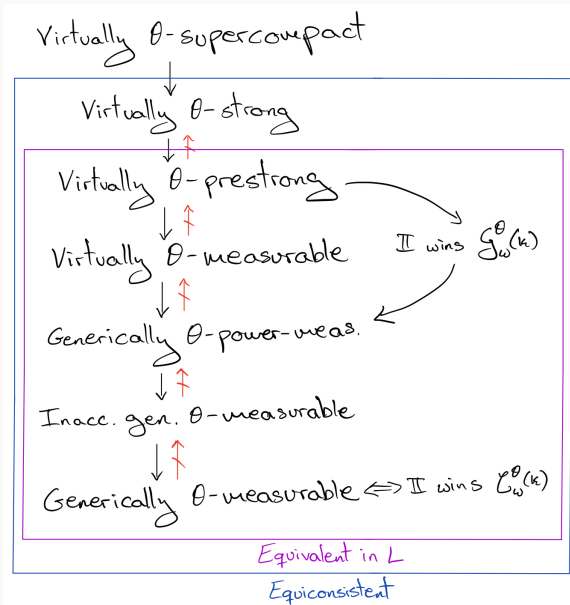 Virtually θ-supercompact
Virtually θ-strong
Virtually θ-prestrong
II wins 𝒢^θ_ω(κ)
Virtually θ-measurable
Generically θ-power-meas.
Inacc. gen. θ-measurable
Generically θ-measurable ⟺ II wins 𝒞^θ_ω(κ)
Equivalent in L
Equiconsistent